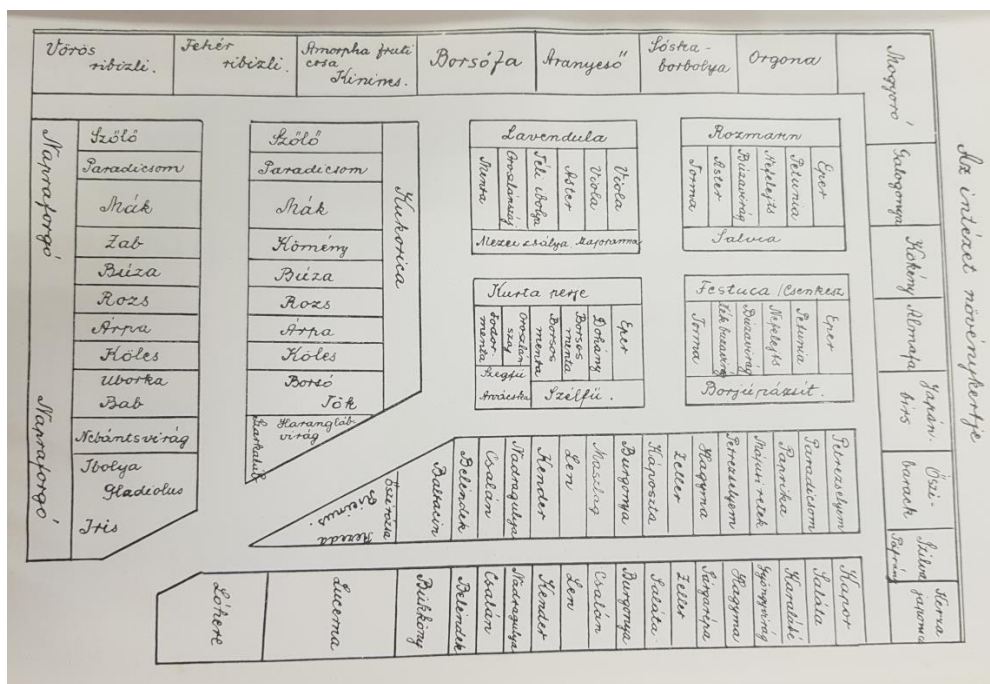 Az intézet növénykertje
Vörös
ribizli.
Fehér
ribizli.
Amorpha fruti
cosa
Kininss.
Borsófa
Aranyeső
Sóska-
borbolya
Orgona
Mogyoró
Galagonya
Kökény
Almafa
Japán.
birs
Őszi-
barack
Szilva
Kerria
japonica
Napraforgó
Napraforgó
Szőlő
Paradicsom
Mák
Zab
Búza
Rozs
Árpa
Köles
Uborka
Bab
Nebántsvirág
Ibolya
Gladiolus
Iris
Szőlő
Paradicsom
Mák
Kömény
Búza
Rozs
Árpa
Köles
Borsó
Tök
Harangláb-
virág
Sarkalub
Kukorica
Lavendula
Menta
Oroszlánszáj
Téli ibolya
Aster
Viola
Viola
Mezei zsálya. Majoranna
Rozmarin
Torma
Aster
Búzavirág
Nefelejts
Petunia
Eper
Salvia
Kurta perje
Fodor
menta
Oroszlán
száj
Borsos
menta
Borsos
menta
Dohány
Eper
Szegfű
Árvácska
Szélfű.
Festuca /Csenkesz
Torma
Búzavirág
Nefelejts
Petunia
Eper
Borjúpázsit.
Rezeda
Ricinus.
Őszirózsa
Baltacin
Belindek
Csalán
Nadragulya
Kender
Len
Maszlag
Burgonya
Káposzta
Zeller
Hagyma
Petrezselyem
Májusi retek
Paprika
Paradicsom
Petrezselyem
Lóhere
Lucerna
Bükköny
Belindek
Csalán
Nadragulya
Kender
Len
Csalán
Burgonya
Saláta
Zeller
Sárgarépa
Hagyma
Gyöngyvirág
Karalábé
Saláta
Kapor